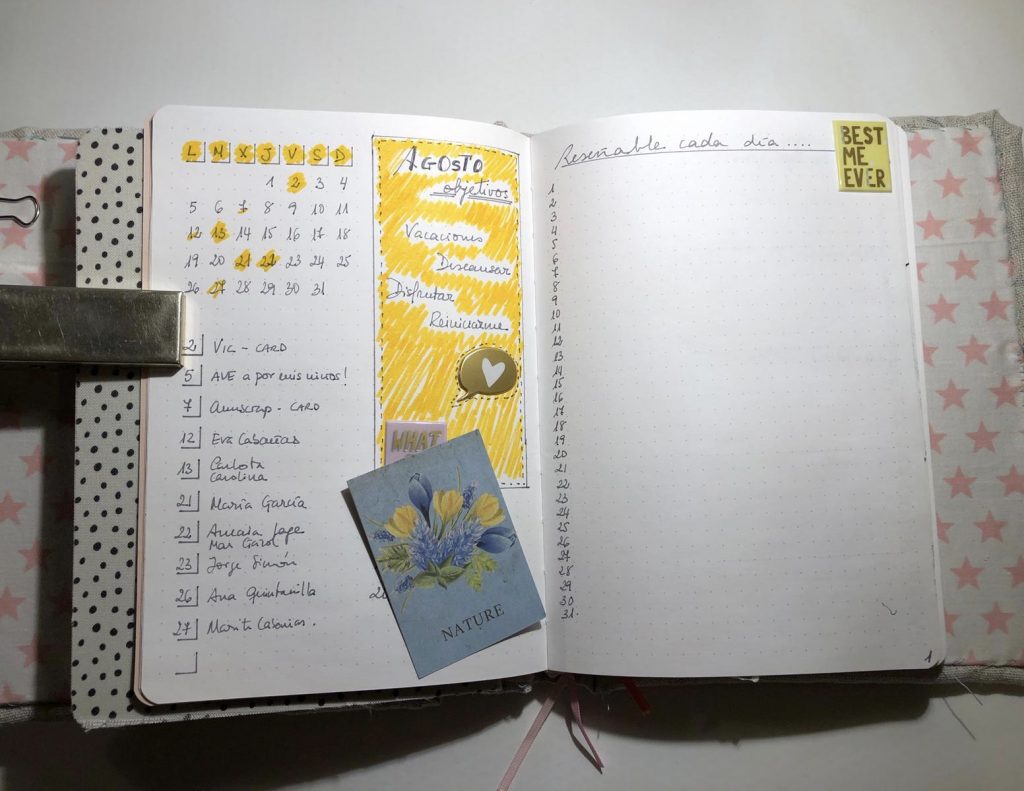 L M X J V S D
1 2 3 4
5 6 7 8 9 10 11
12 13 14 15 16 17 18
19 20 21 22 23 24 25
26 27 28 29 30 31
2 VIC - CARD
5 AVE a por mis ninos!
7 - CARD
12 Eva Cabañas
13 Carlota
Carolina
21 María García
22
Mar
23 Jorge Simón
26 Ana Quintanilla
27
AGOSTO
objetivos
Vacaciones
Descansar
Disfrutar
Reiniciarme
WHAT
NATURE
Reseñable cada día ....
BEST
ME
EVER
1
2
3
4
5
6
7
8
9
10
11
12
13
14
15
16
17
18
19
20
21
22
23
24
25
26
27
28
29
30
31.
1